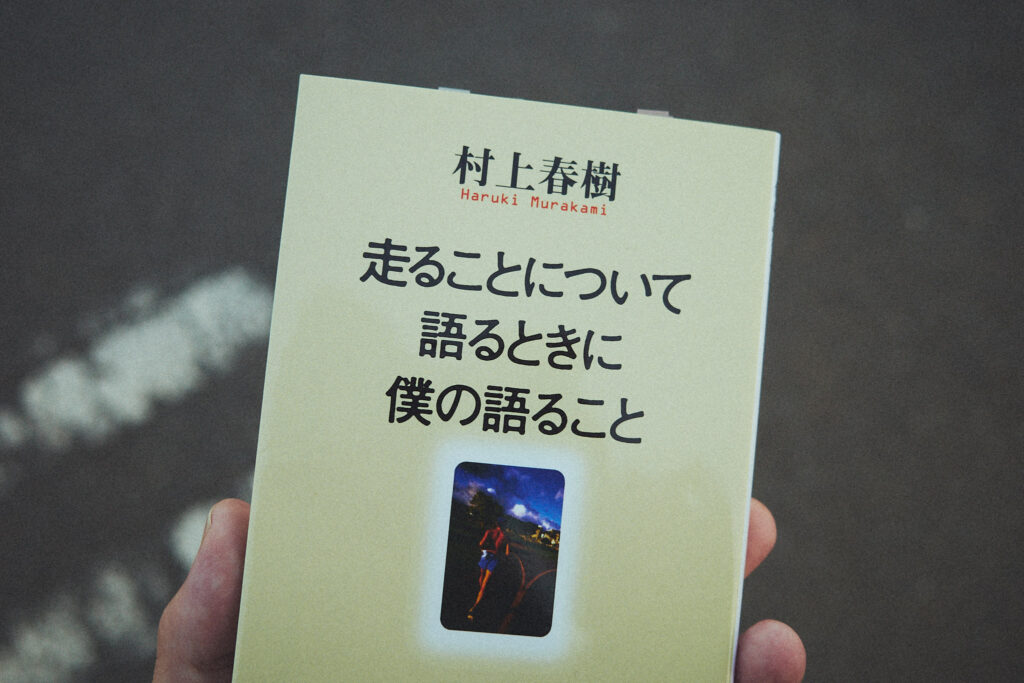 村上春樹
Haruki Murakami
走ることについて
語るときに
僕の語ること